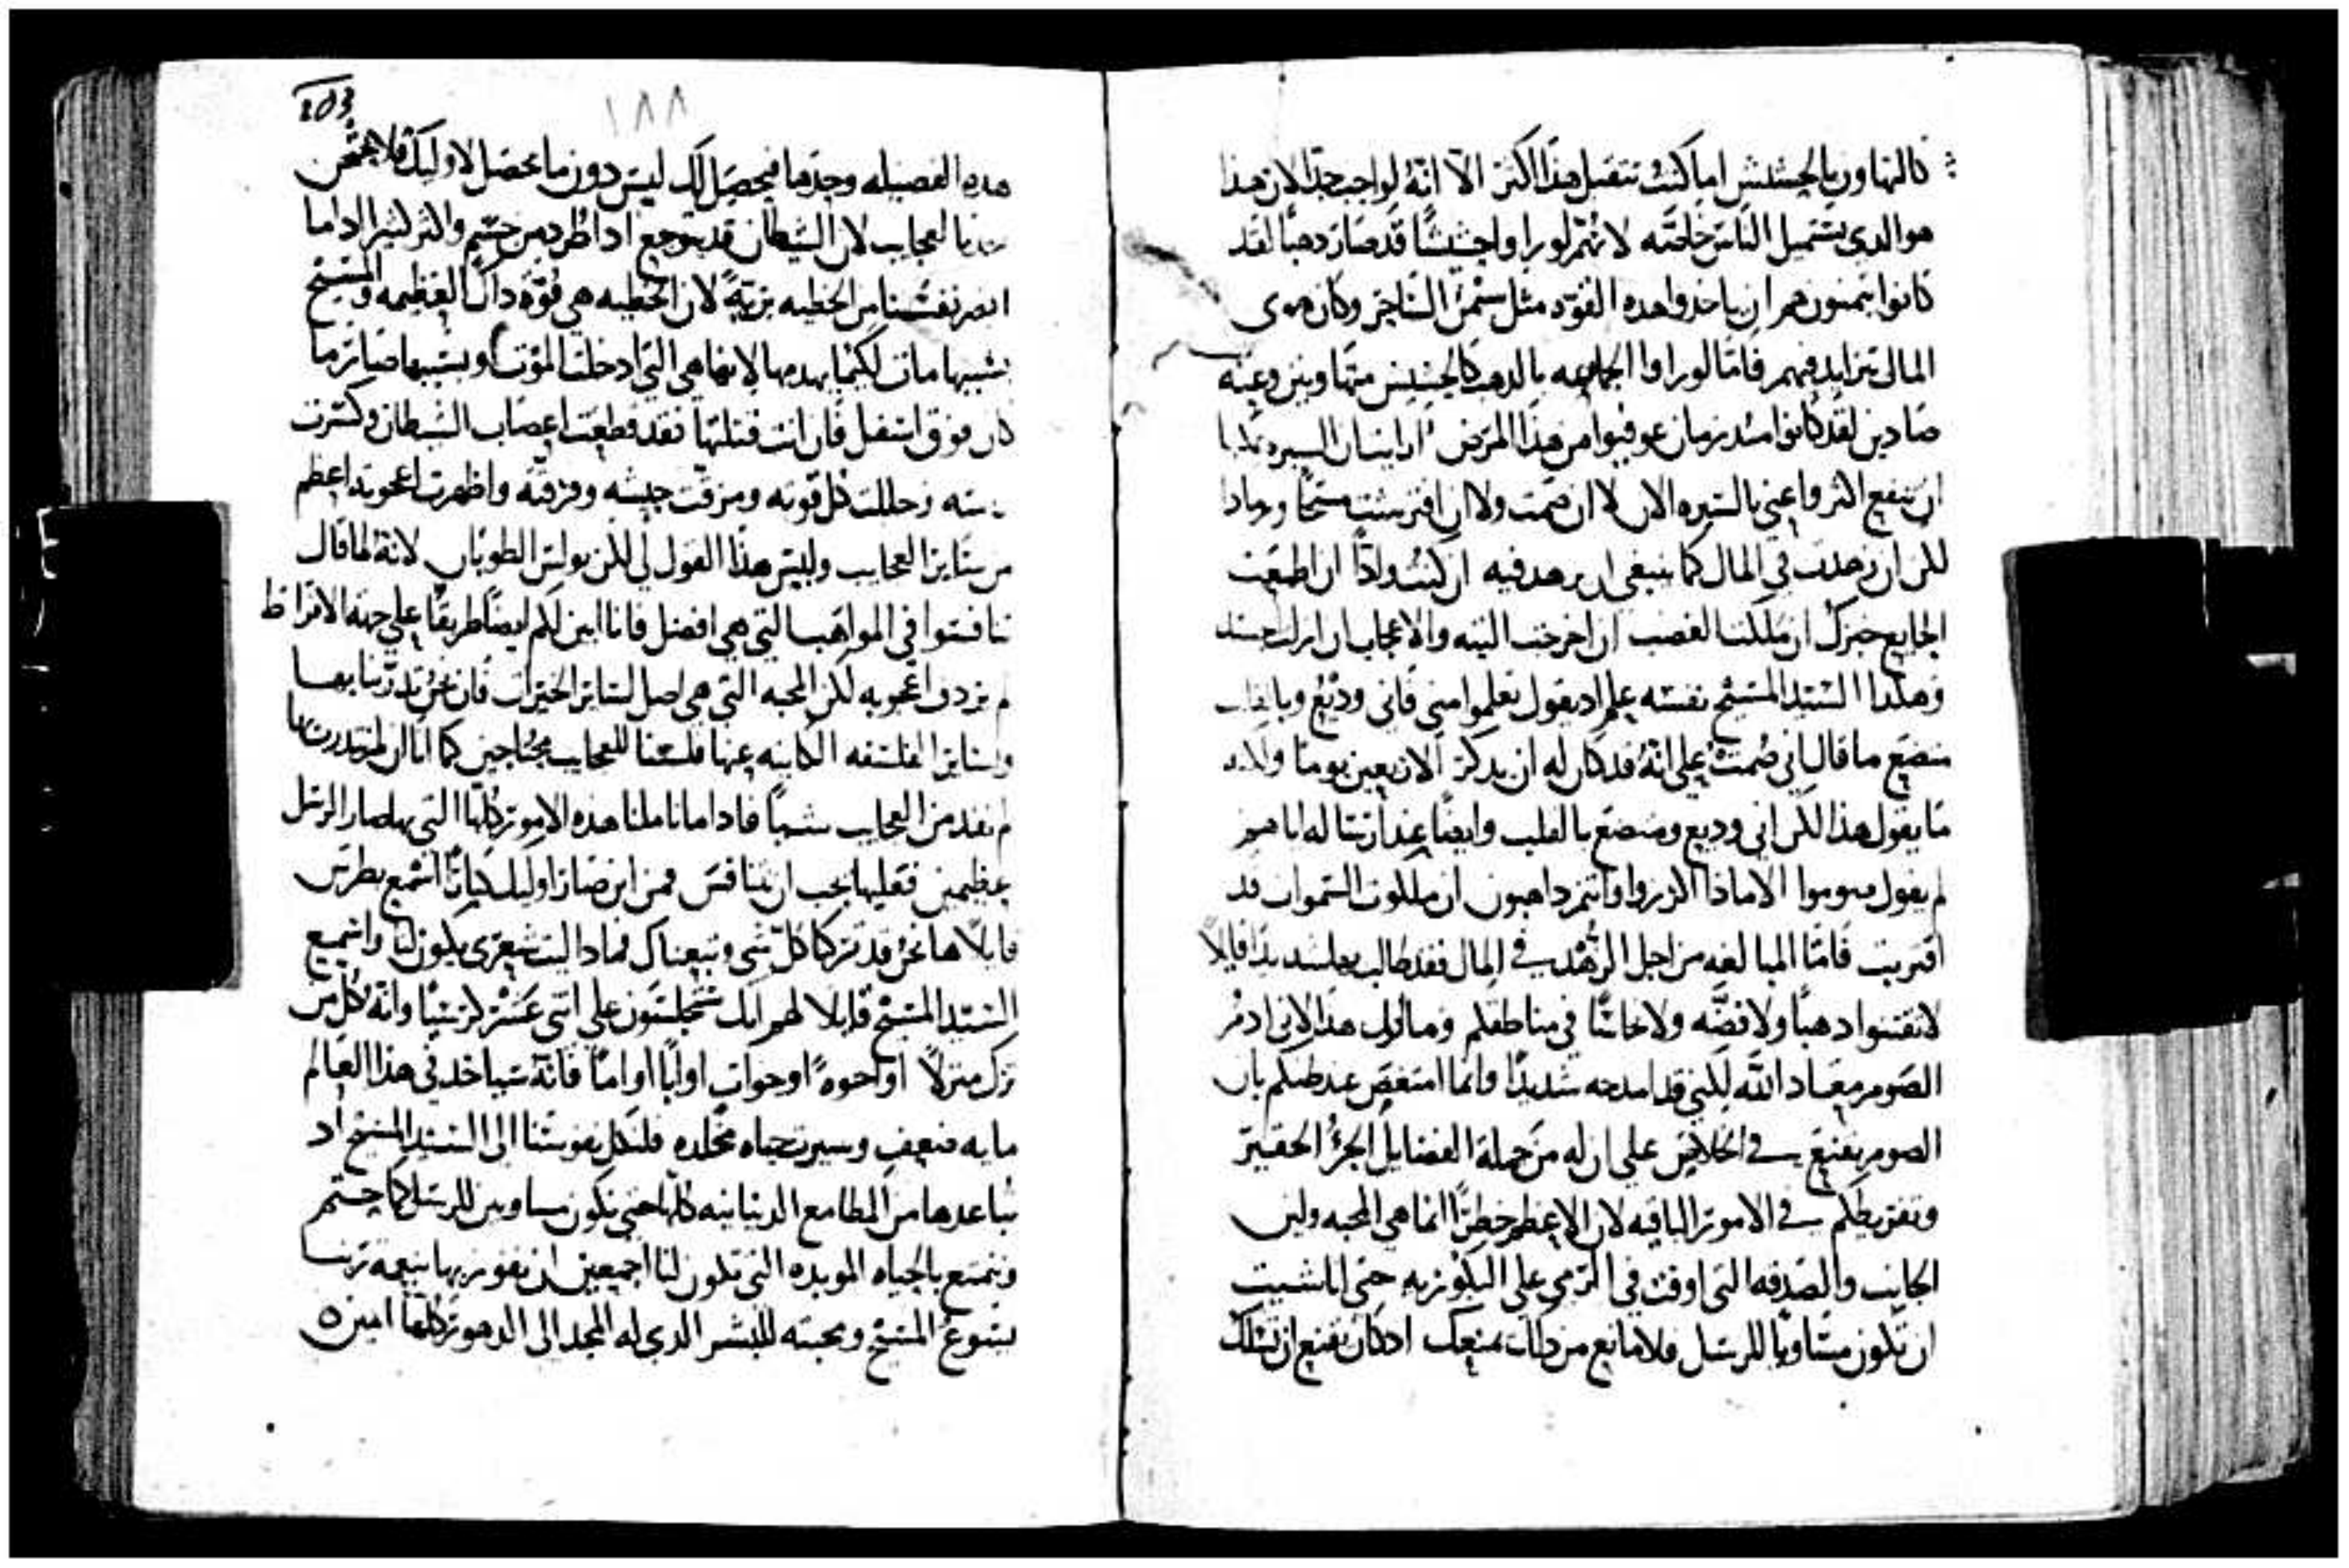 كالتهاون بالحشيش اما كنت تتقبل هذا اكثر الا انه لواجب جدا لان هذا
هو الدي يستميل الناس خاصته لانهم لو راوا حشيشا قد صار دهبا لقد
كانوا يتمنون هم ان ياخدوا هده القوه مثل سيمن الساحر وكان هوى
المال يتزايد فيهم فاما لو راوا الجماعه بالدهب كالحشيش متهاونين وعنه
صادين لقد كانوا مند زمان عوفيوا من هذا المرض ارايت ان السيره
ان تنفع اكثر واعني بالسيره الان لا ان صمت ولا ان افترشت مسحا ورمادا
لكن ان زهدت في المال كما ينبغي ان يزهد فيه ان كنت وادا ان اطعمت
الجايع خبزك ان ملكت الغضب ان اخرجت التيه والاعجاب ان ازلت الحسد
وهكدا السيد المسيح نفسه علم اد يقول تعلموا مني فاني وديع وبالقلب
متضع ما قال اني صمت على انه قد كان له ان يدكر الاربعين يوما ولكنه
ما يقول هذا لكن اني وديع ومتضع بالقلب وايضا عند ارساله اياهم
لم يقول صوموا الا ماذا اكرزوا وانتم داهبون ان ملكوت السموات قد
اقتربت فاما المبالغه من اجل الزهد في المال فقد طالب بها شديدا قايلا
لا تقتنوا دهبا ولا فضه ولا نحاسا في مناطقكم وما اقول هذا لاني ادم
الصوم معاد الله لكنني قد امدحه شديدا وانما امتعض عند ظنكم بان
الصوم يقنع في الخلاص على ان له من جملة الفضايل الجزؤ الحقير
وتفريطكم في الامور الباقيه لان الاعظم خطرا انما هي المحبه ولين
الجانب والصدقه التي اوفت في الرمي على البكوريه حتى اداشيت
ان تكون مساويا للرسل فلا مانع من دلك يمنعك اد كان يقنع ان تسلك
103
١٨٨
هده الفضيله وحدها فيحصل لك ليس دون ما يحصل لاوليك فلا يمتحن
احدنا العجايب لان الشيطان قد يتوجع ادا طرد من جسم واكثر كثيرا ادا ما
ابصر نفسنا من الخطيه بريه لان الخطيه هي قوة داك العظيمه والمسيح
بسببها مات لكيما يهدمها لانها هي التي ادخلت الموت وبسببها صار ما
كان فوق اسفل فان انت قتلتها فقد قطعت اعصاب الشيطان وكسرت
وحللت كل قوته ومزقت جيشه وفرقته واظهرت اعجوبه اعظم
من ساير العجايب وليس هذا القول لي لكن بولس الطوباني لانه لما قال
تنافسوا في المواهب التي هي افضل فانا ابين لكم ايضا طريقا على جهة الافراط
لم يردف اعجوبه لكن المحبه التي هي اصل لساير الخيرات فان نحن تدربنا بها
وبساير الفلسفه الكاينه عنها فلسنا للعجايب محتاجين كما انا ان لم نتدرب بها
لم نفد من العجايب شيا فادا ما تاملنا هده الامور كلها التي بها صار الرسل
عظيمين فعليها يجب ان نتنافس فمن اين صار اوليك كبارا اسمع بطرس
قايلا ها نحن قد تركنا كل شي وتبعناك فمادا ليت شعري يكون لنا واسمع
السيد المسيح قايلا لهم انكم ستجلسون على اثنى عشر كرسيا وانه كل من
ترك منزلا او اخوه او اخوات او ابا او اما فانه سياخد في هذا العالم
مايه ضعف وسيرث حياه مخلده فلنكل نفوسنا الى السيد المسيح اد
نباعدها من المطامع الدنيانيه كلها حتى نكون مساوين للرسل كما حتم
ونتمتع بالحياه الموبده التي تكون لنا اجمعين ان نفوز بها بنعمة ربنا
يسوع المسيح ومحبته للبشر الدي له المجد الى الدهور كلها امين ٥